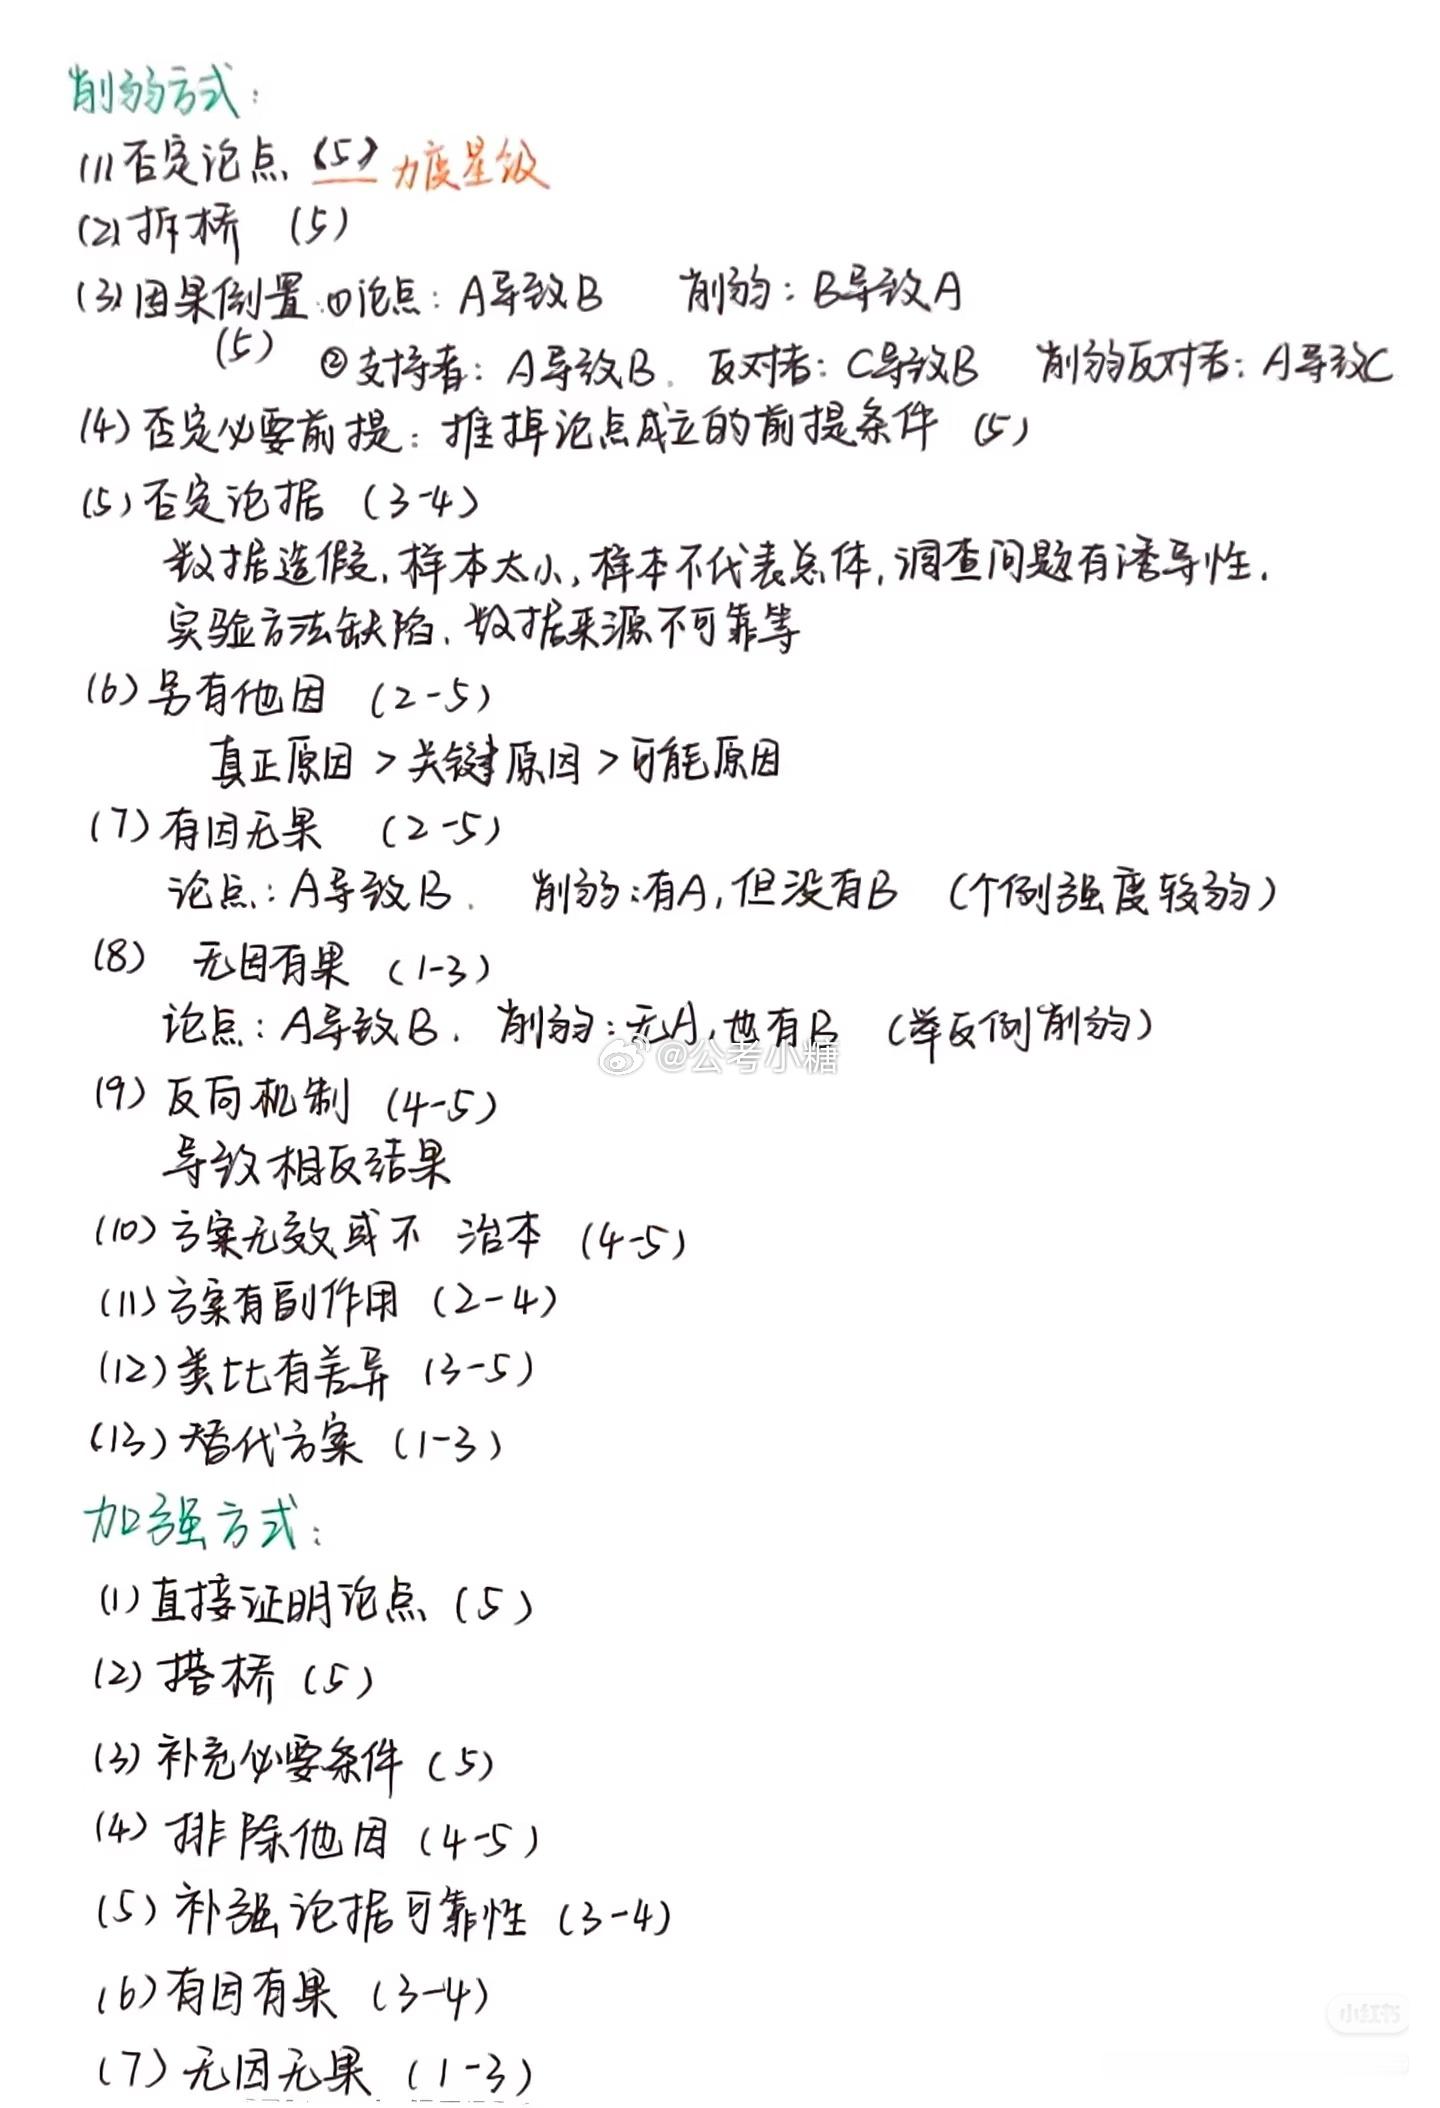 削弱方式：
(1)否定论点 (5) 力度星级
(2)拆桥 (5)
(3)因果倒置：①论点：A导致B 削弱：B导致A
(5) ②支持者：A导致B. 反对者：C导致B 削弱反对者：A导致C
(4)否定必要前提：推掉论点成立的前提条件 (5)
(5)否定论据 (3-4)
数据造假,样本太小,样本不代表总体,调查问题有诱导性.
实验方法缺陷.数据来源不可靠等
(6)另有他因 (2-5)
真正原因>关键原因>可能原因
(7)有因无果 (2-5)
论点：A导致B. 削弱：有A,但没有B (个例强度较弱)
(8) 无因有果 (1-3)
论点：A导致B. 削弱：无A,也有B (举反例削弱)
@公考小糖
(9)反向机制 (4-5)
导致相反结果
(10)方案无效或不 治本 (4-5)
(11)方案有副作用 (2-4)
(12)类比有差异 (3-5)
(13)替代方案 (1-3)
加强方式：
(1)直接证明论点 (5)
(2)搭桥 (5)
(3)补充必要条件 (5)
(4)排除他因 (4-5)
(5)补强论据可靠性 (3-4)
(6)有因有果 (3-4)
小红书
(7)无因无果 (1-3)